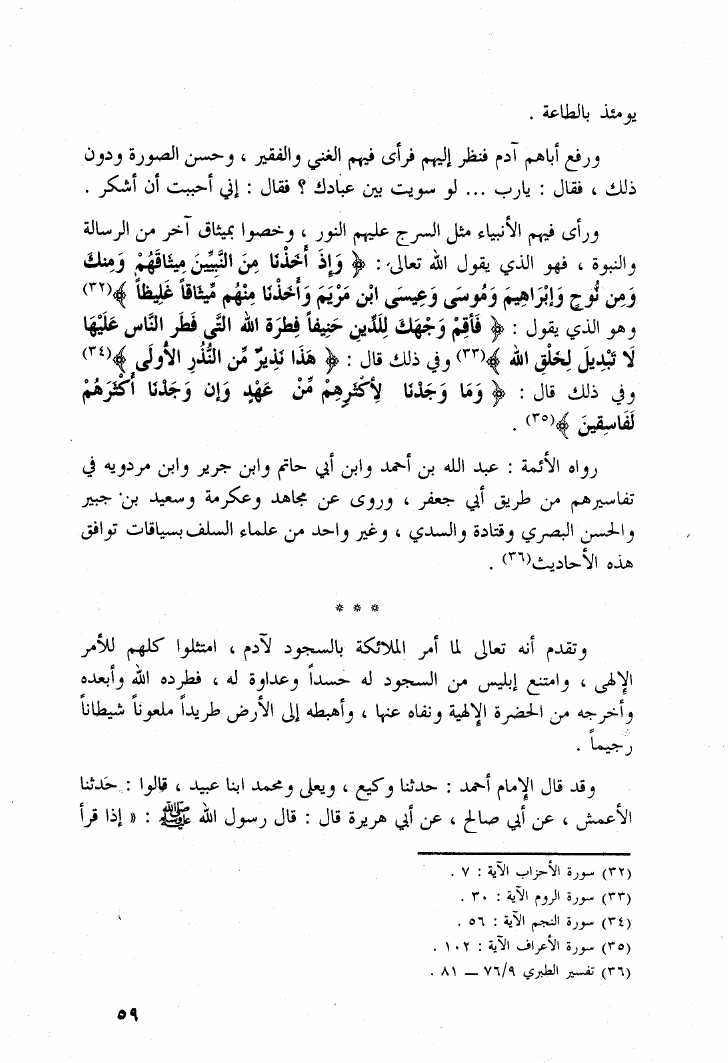 يومئذ بالطاعة .
ورفع أباهم آدم فنظر إليهم فرأى فيهم الغني والفقير ، وحسن الصورة ودون
ذلك ، فقال : يارب ... لو سويت بين عبادك ؟ فقال : إني أحببت أن أشكر .
ورأى فيهم الأنبياء مثل السرج عليهم النور ، وخصوا بميثاق آخر من الرسالة
والنبوة ، فهو الذي يقول الله تعالى : ﴿ وَإِذْ أَخَذْنَا مِنَ النَّبِيِّينَ مِيثَاقَهُمْ وَمِنكَ
وَمِن نُّوحٍ وَإِبْرَاهِيمَ وَمُوسَى وَعِيسَى ابْنِ مَرْيَمَ وَأَخَذْنَا مِنْهُم مِّيثَاقاً غَلِيظاً ﴾(٣٢)
وهو الذي يقول : ﴿ فَأَقِمْ وَجْهَكَ لِلدِّينِ حَنِيفاً فِطرَةَ اللهِ التَّي فَطَر النَّاس عَلَيْهَا
لَا تَبْدِيلَ لِخَلْقِ الله ﴾(٣٣) وفي ذلك قال : ﴿ هَذَا نَذِيرٌ مِّن النُّذُرِ الأولَى ﴾(٣٤)
وفي ذلك قال : ﴿ وَمَا وَجَدْنَا لأِكثَرِهِمْ مِّنْ عَهْدٍ وَإِن وَجَدْنَا أَكْثَرَهُمْ
لَفَاسِقِينَ ﴾(٣٥) .
رواه الأئمة : عبد الله بن أحمد وابن أبي حاتم وابن جرير وابن مردويه في
تفاسيرهم من طريق أبي جعفر ، وروى عن مجاهد وعكرمة وسعيد بن جبير
والحسن البصري وقتادة والسدي ، وغير واحد من علماء السلف بسياقات توافق
هذه الأحاديث(٣٦) .
* * *
وتقدم أنه تعالى لما أمر الملائكة بالسجود لآدم ، امتثلوا كلهم للأمر
الإلهي ، وامتنع إبليس من السجود له حسداً وعداوة له ، فطرده الله وأبعده
وأخرجه من الحضرة الإلهية ونفاه عنها ، وأهبطه إلى الأرض طريداً ملعوناً شيطاناً
رجيماً .
وقد قال الإمام أحمد : حدثنا وكيع ، ويعلى ومحمد ابنا عبيد ، قالوا : حدثنا
الأعمش ، عن أبي صالح ، عن أبي هريرة قال : قال رسول الله ﷺ : « إذا قرأ
(٣٢) سورة الأحزاب الآية : ٧ .
(٣٣) سورة الروم الآية : ٣٠ .
(٣٤) سورة النجم الآية : ٥٦ .
(٣٥) سورة الأعراف الآية : ١٠٢ .
(٣٦) تفسير الطبري ٧٦/٩ — ٨١ .
٥٩